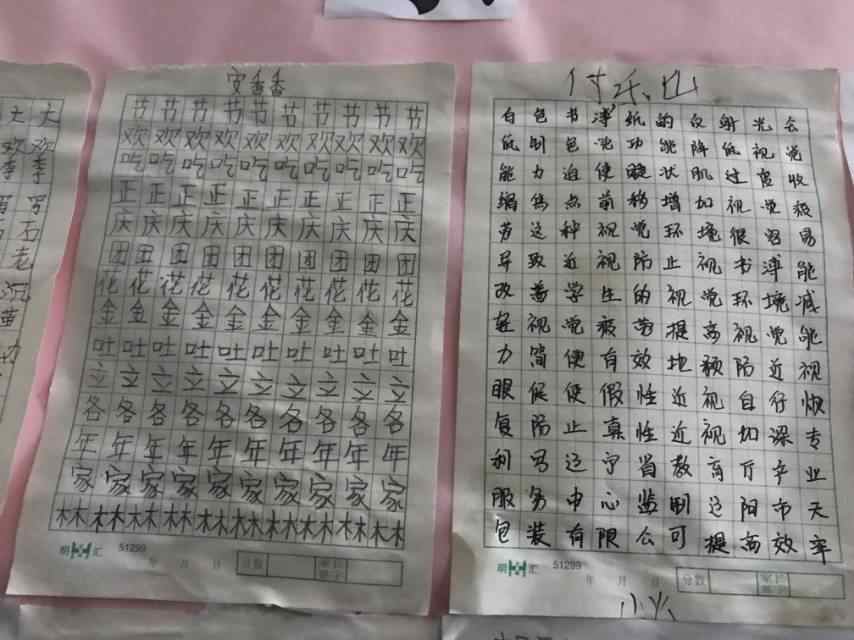 大 大
欢 欢
李 李
写
石
老
沉
黄
安香香
节 节 节 节 节 节 节 节 节
欢 欢 欢 欢 欢 欢 欢 欢 欢
吃 吃 吃 吃 吃 吃 吃 吃 吃
正 正 正 正 正 正 正 正 正
庆 庆 庆 庆 庆 庆 庆 庆 庆
团 团 团 团 团 团 团 团 团
花 花 花 花 花 花 花 花 花
金 金 金 金 金 金 金 金 金
吐 吐 吐 吐 吐 吐 吐 吐 吐
立 立 立 立 立 立 立 立 立
各 各 各 各 各 各 各 各 各
年 年 年 年 年 年 年 年 年
家 家 家 家 家 家 家 家 家
林 林 林 林 林 林 林 林 林
明 汇 51299 年 月 日 分数 家长签字
付乐山
白色书薄纸的反射光会
低制色咣功能降低视觉
能力迫使睫状肌过度收
缩焦点前移增加视觉疲
劳这种视觉环境很容易
导致近视防止视书薄能
改善学生的视觉环境减
轻视觉疲劳提高视觉能
力简便有效地预防近视
眼促使假性近视自行恢
复防止真性近视加深专
利写辽宁省教育厅产业
服务中心监制辽阳市天
包装有限公可提高效率
明 汇 51299 年 月 日 分数 家长签字
小火